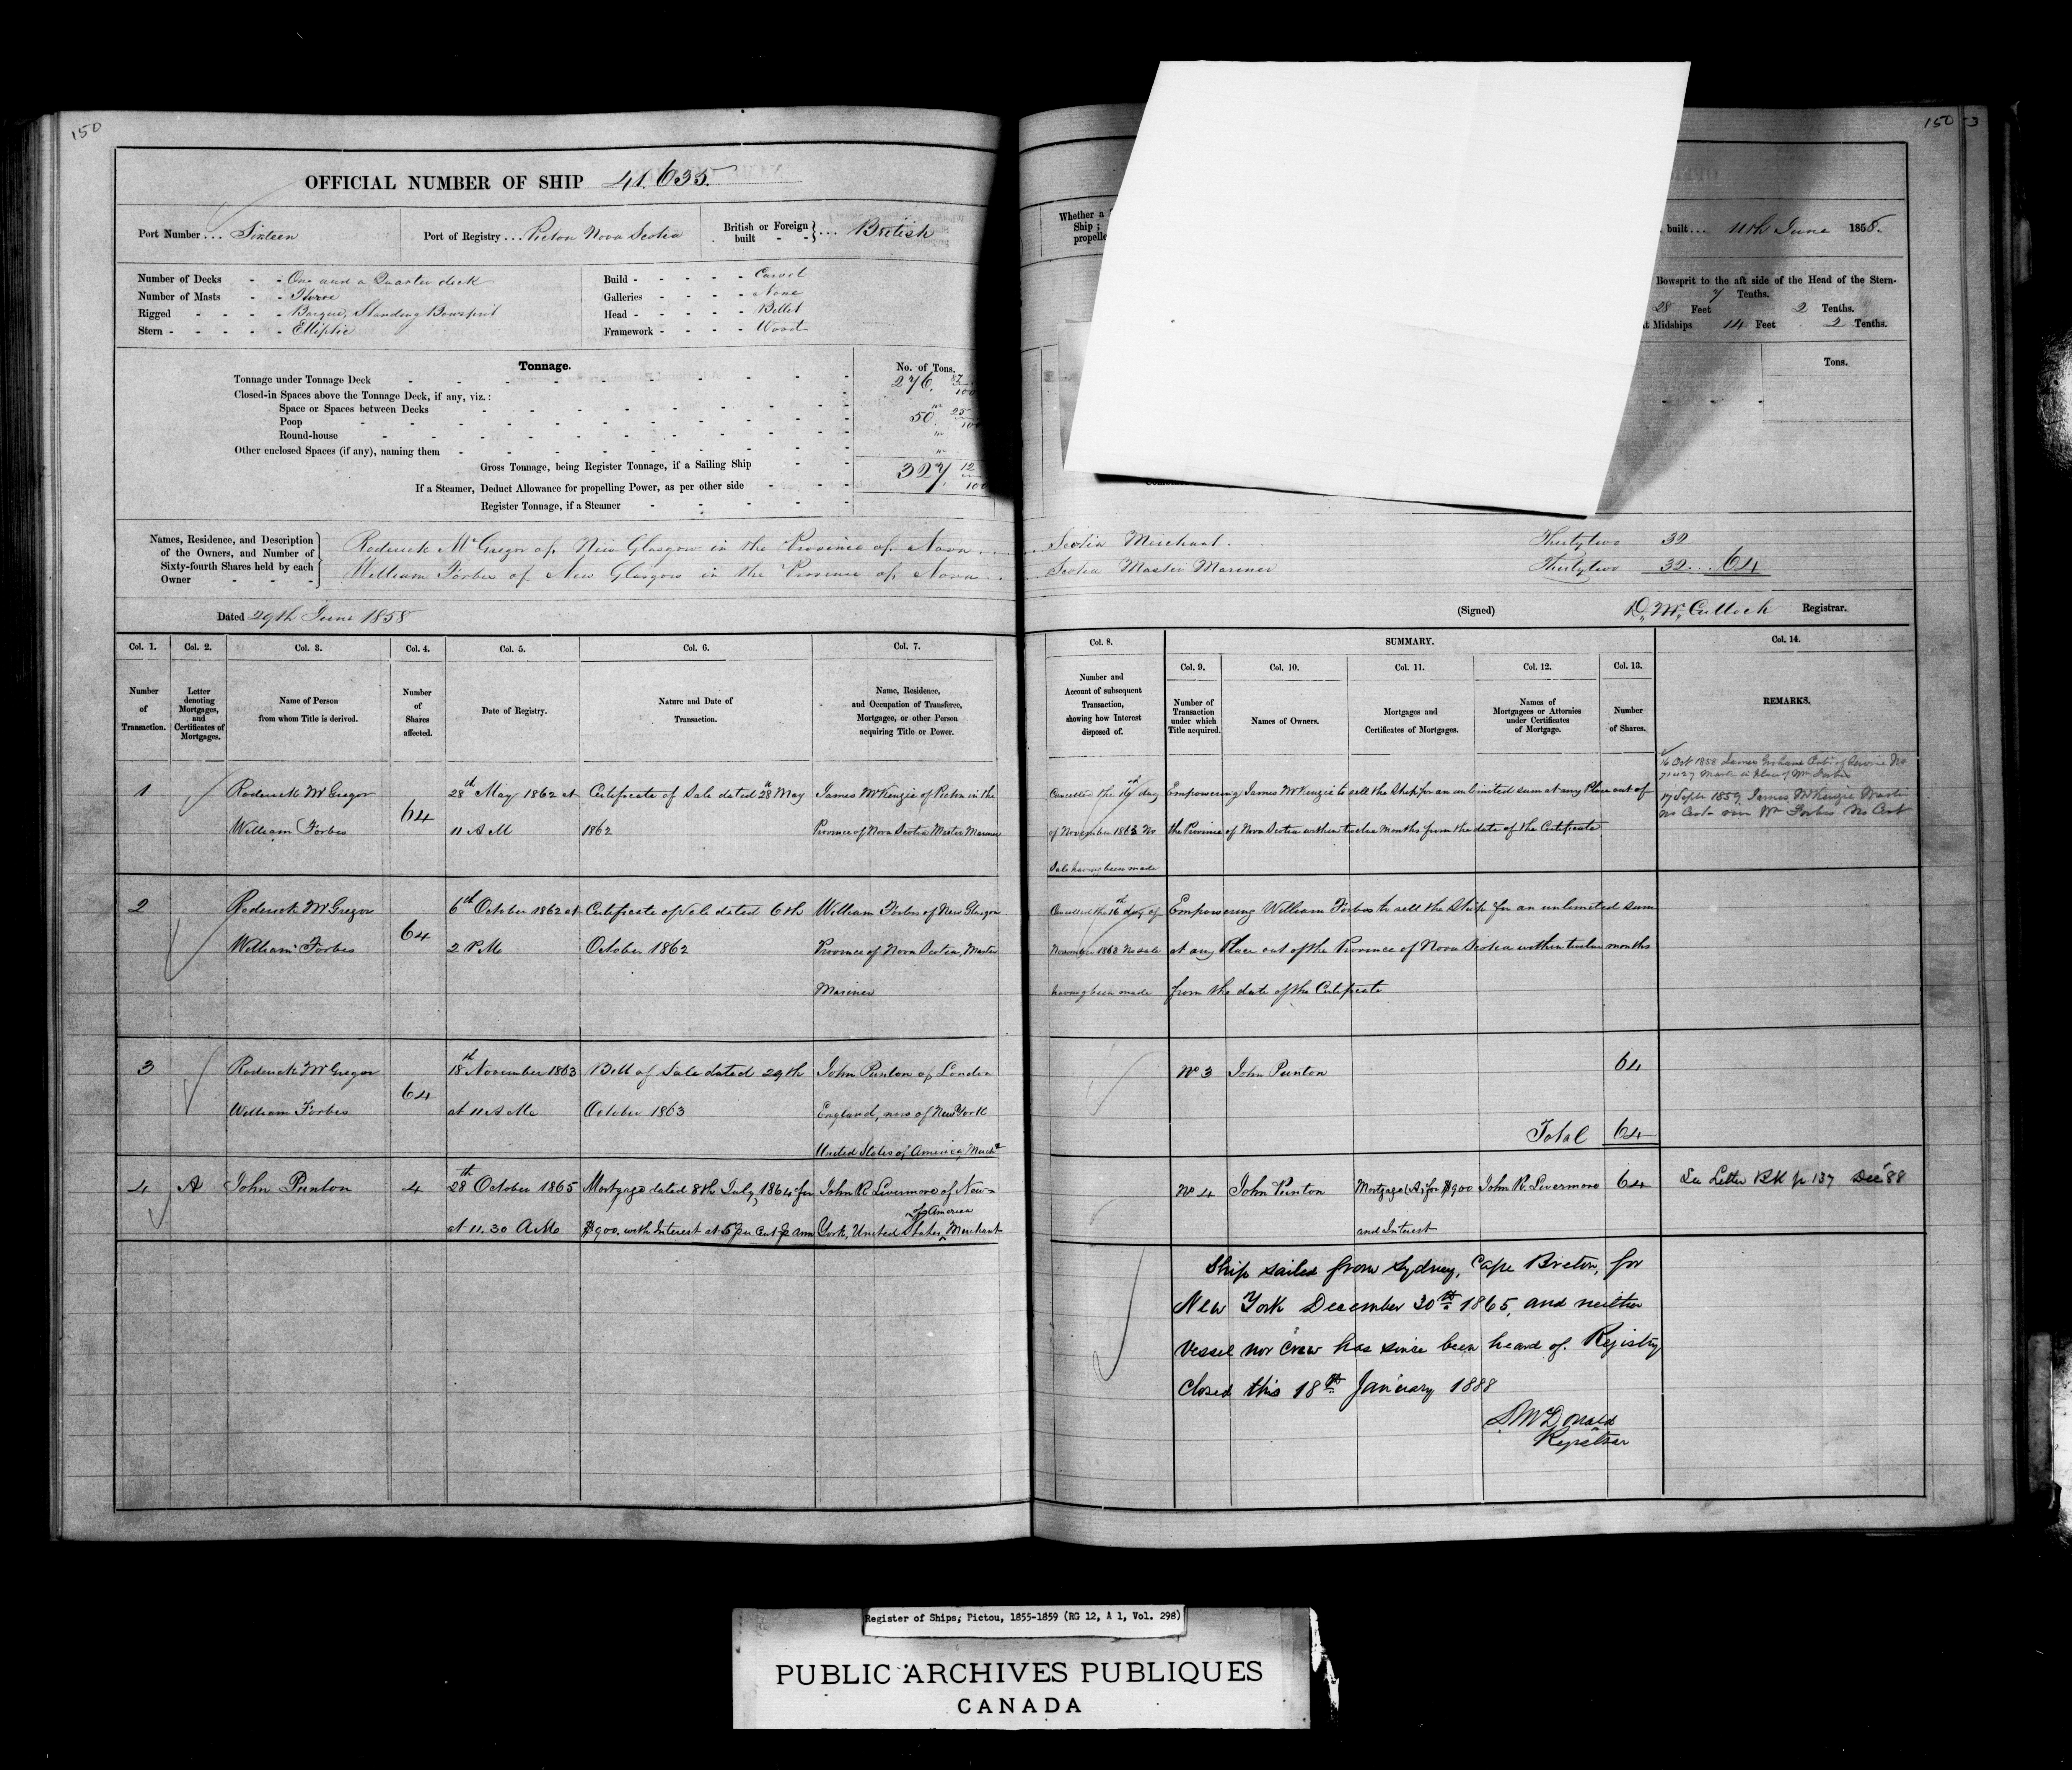 150
150
OFFICIAL NUMBER OF SHIP 41.635.
Port Number ... Sixteen
Port of Registry ... Pictou Nova Scotia
British or Foreign built - - } .... British
Whether a
Ship;
propelle
built ... 11th June 1858.
Number of Decks - - One and a Quarter deck
Number of Masts - - Three
Rigged - - - - Barque, Standing Bowsprit
Stern - - - - - Elliptic
Build - - - - - Carvel
Galleries - - - - None
Head - - - - - Billet
Framework - - - - Wood
Bowsprit to the aft side of the Head of the Stern-
7 Tenths.
28 Feet 2 Tenths.
t Midships 14 Feet 2 Tenths.
Tonnage.
No. of Tons.
Tons.
Tonnage under Tonnage Deck 276. 87/100
Closed-in Spaces above the Tonnage Deck, if any, viz.:
Space or Spaces between Decks "
Poop 50. 25/100
Round-house "
Other enclosed Spaces (if any), naming them "
Gross Tonnage, being Register Tonnage, if a Sailing Ship 327. 12/100
If a Steamer, Deduct Allowance for propelling Power, as per other side
Register Tonnage, if a Steamer
Names, Residence, and Description of the Owners, and Number of Sixty-fourth Shares held by each Owner
Roderick McGregor of New Glasgow in the Province of Nova Scotia Merchant. Thirtytwo 32
William Forbes of New Glasgow in the Province of Nova Scotia Master Mariner Thirtytwo 32 .. 64
Dated 29th June 1858
(Signed) D. McCulloch Registrar.
Col. 1. Col. 2. Col. 3. Col. 4. Col. 5. Col. 6. Col. 7. Col. 8. SUMMARY. Col. 14.
Col. 9. Col. 10. Col. 11. Col. 12. Col. 13.
Number of Transaction.
Letter denoting Mortgages, and Certificates of Mortgages.
Name of Person from whom Title is derived.
Number of Shares affected.
Date of Registry.
Nature and Date of Transaction.
Name, Residence, and Occupation of Transferee, Mortgagee, or other Person acquiring Title or Power.
Number and Account of subsequent Transaction, showing how Interest disposed of.
Number of Transaction under which Title acquired.
Names of Owners.
Mortgages and Certificates of Mortgages.
Names of Mortgagees or Attornies under Certificates of Mortgage.
Number of Shares.
REMARKS.
1
Roderick McGregor
William Forbes
64
28th May 1862 at
11 A M
Certificate of Sale dated 28th May
1862
James McKenzie of Pictou in the
Province of Nova Scotia Master Mariner
Cancelled the 16th day
of November 1863 No
Sale having been made
Empowering James McKenzie to sell the Ship for an unlimited sum at any Place out of
the Province of Nova Scotia within twelve months from the date of the Certificate
16 Oct 1858 James Graham Cert. of Service No
71427 Master in place of Wm Forbes
17 Septr 1859, James McKenzie Master
No Cert. vice Wm Forbes No Cert
2
Roderick McGregor
William Forbes
64
6th October 1862 at
2 P M
Certificate of Sale dated 6th
October 1862
William Forbes of New Glasgow
Province of Nova Scotia, Master
Mariner
Cancelled the 16th day of
November 1863 No Sale
having been made
Empowering William Forbes to sell the Ship for an unlimited sum
at any Place out of the Province of Nova Scotia within twelve months
from the date of the Certificate
3
Roderick McGregor
William Forbes
64
18th November 1863
at 11 A M
Bill of Sale dated 29th
October 1863
John Punton of London
England, now of New York
United States of America, Mercht
No 3 John Punton 64
Total 64
4 A John Punton 4
28th October 1865
at 11.30 A M
Mortgage dated 8th July, 1864 for
$900. with Interest at 5 per Cent p ann
John R. Livermore of New
York, United States of America, Merchant
No 4 John Punton Mortgage (A) for $900
and Interest
John R. Livermore 64
See Letter BK p. 137 Dec '88
Ship sailed from Sydney, Cape Breton, for
New York December 30th 1865, and neither
Vessel nor Crew has since been heard of. Registry
closed this 18th January 1888
McDonald
Registrar
Register of Ships; Pictou, 1855-1859 (RG 12, A 1, Vol. 298)
PUBLIC ARCHIVES PUBLIQUES
CANADA